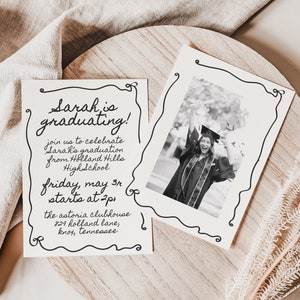 Sarah is
graduating!
join us to celebrate
Sarah's graduation
from Holland Hills
HighSchool
friday, may 3r
starts at 2pm
the astoria clubhouse
729 holland lane,
knox, tennessee